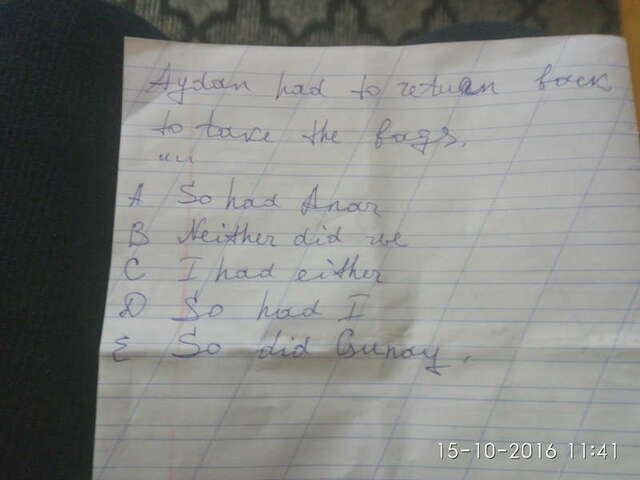 Aydan had to return back
to take the bags.
"..."
A So had Anar
B Neither did we
C I had either
D So had I
E So did Gunay.
15-10-2016 11:41